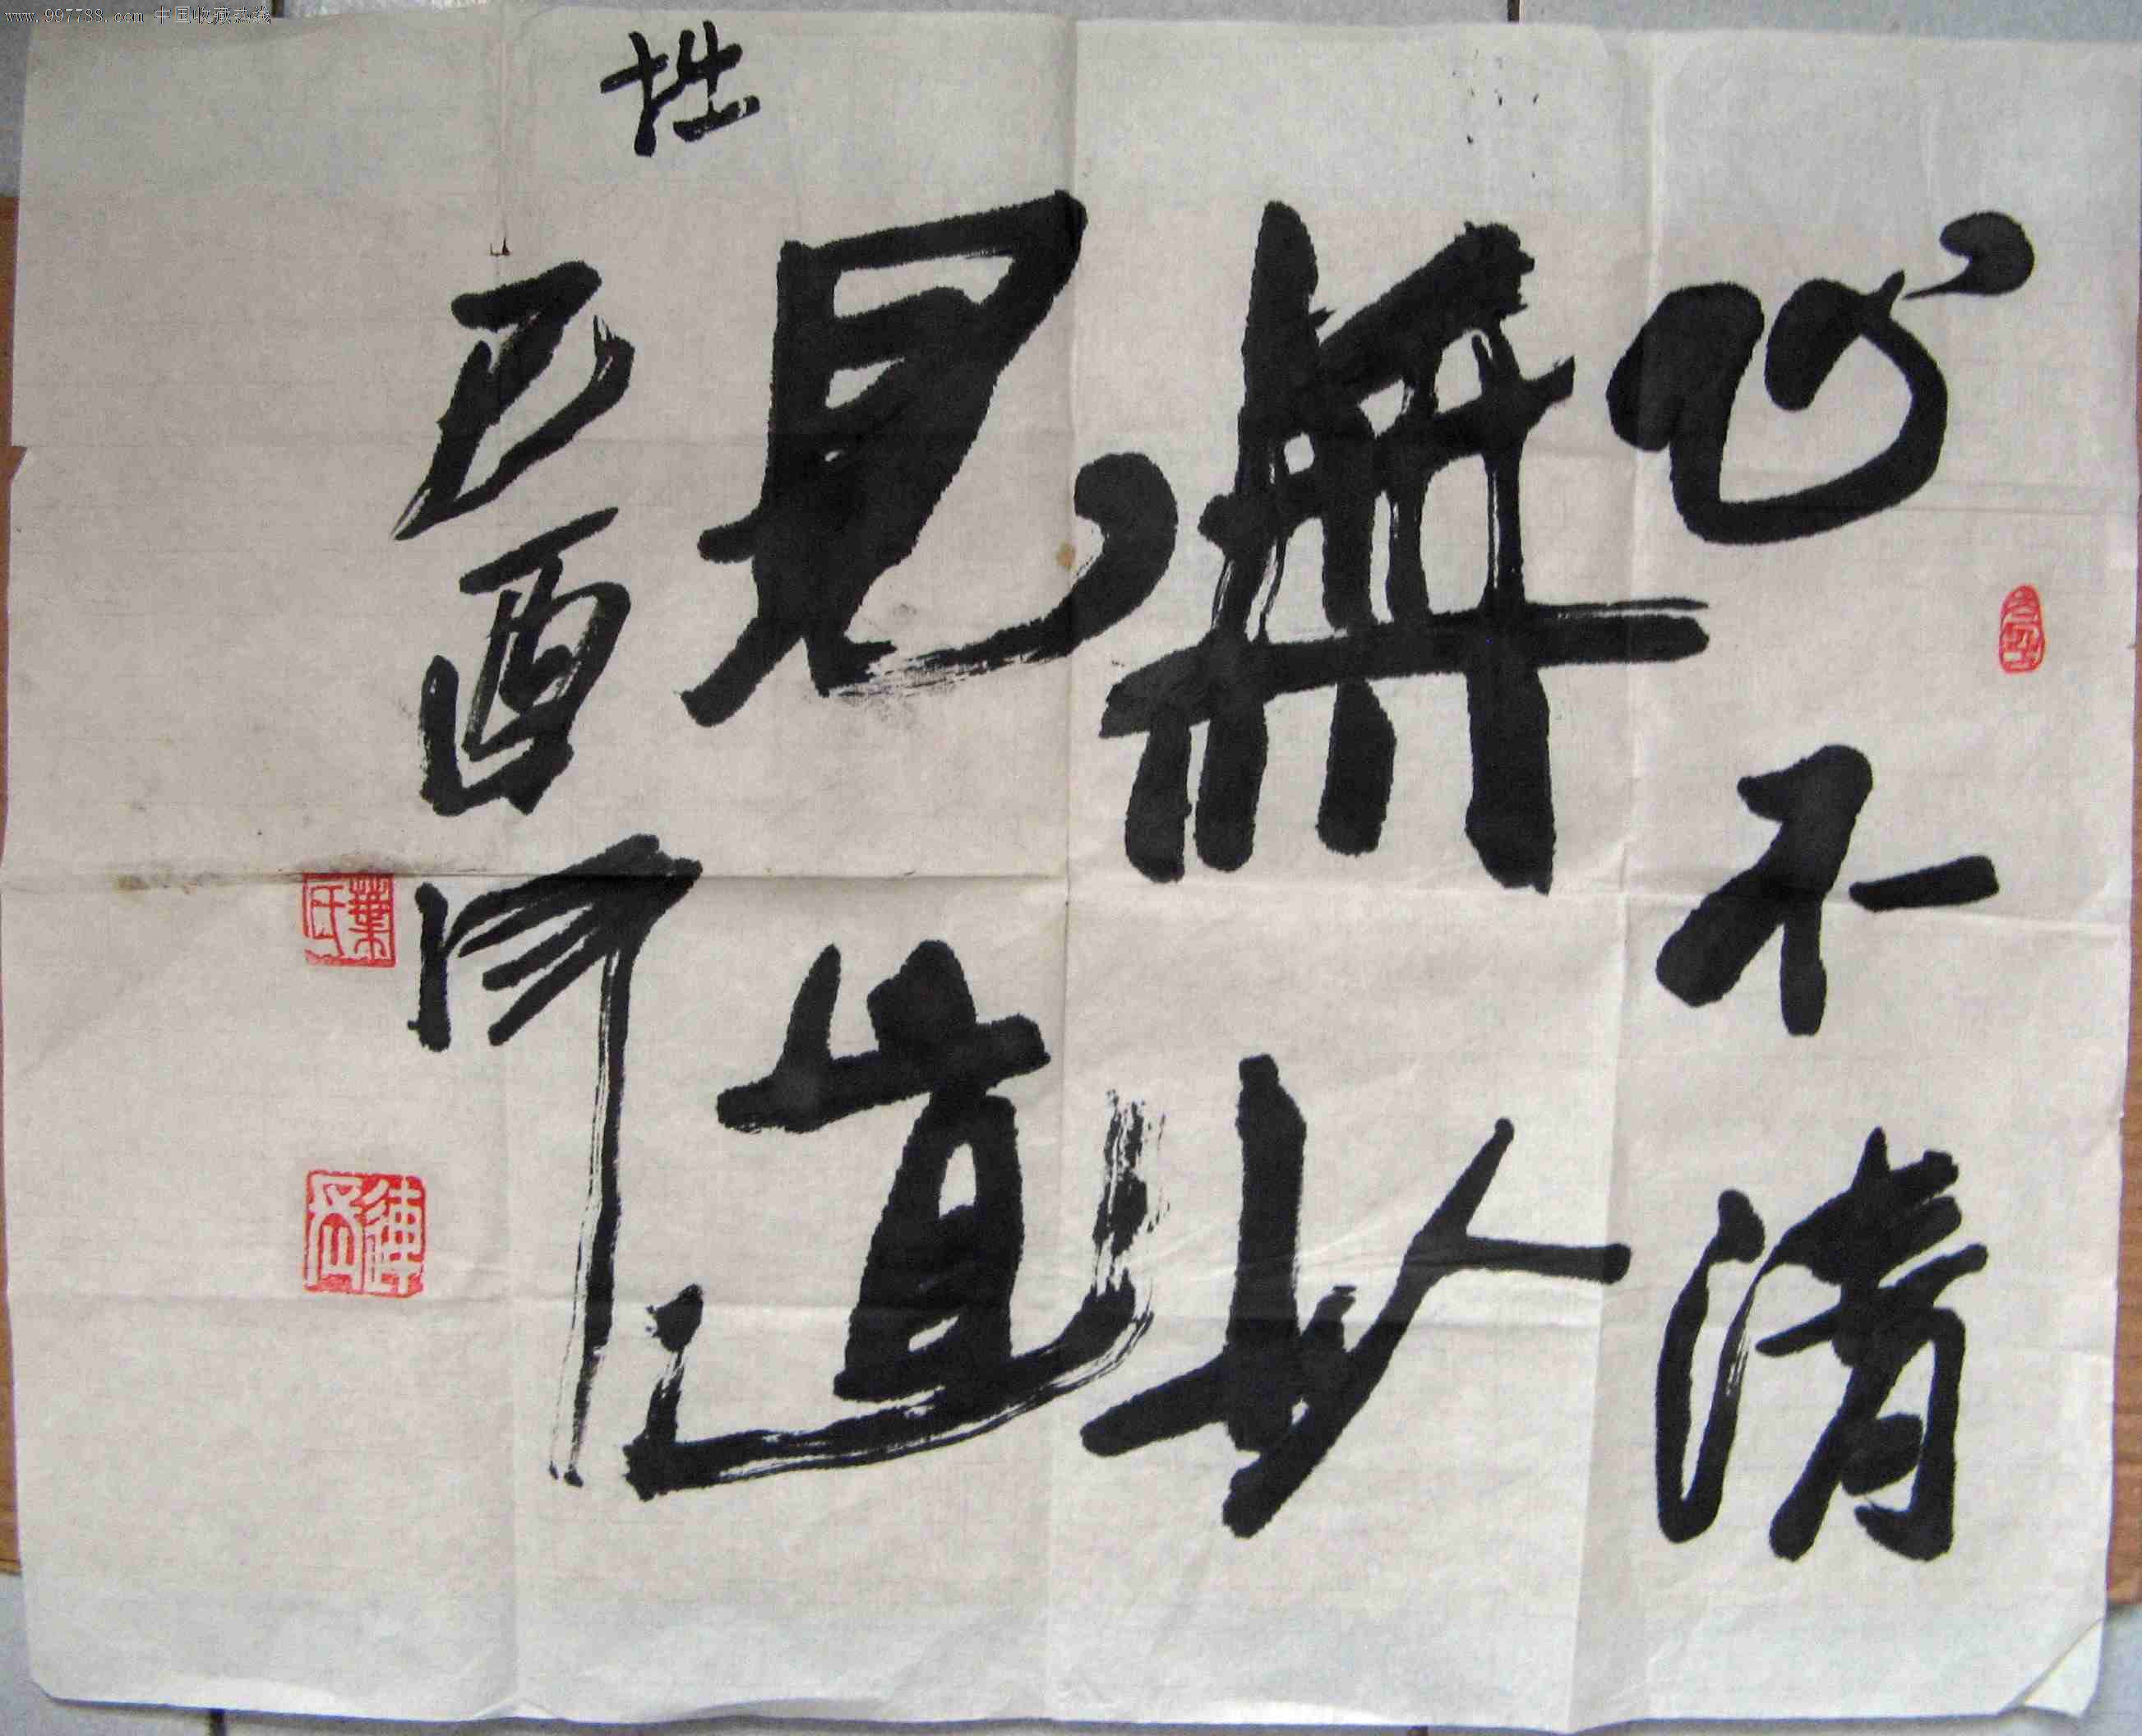 www.997788.com 中国收藏热线
心不清
無以
見道
拙
己酉
葉氏